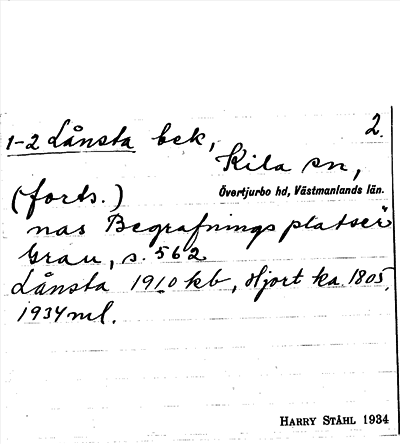 2.
1-2 Lånsta bek,
Kila sn,
Övertjurbo hd, Västmanlands län.
(forts.)
nas Begrafnings platser"
Grau, s. 562
Lånsta 1910 kb, Hjort ka. 1805,
1934 ml.
HARRY STÅHL 1934